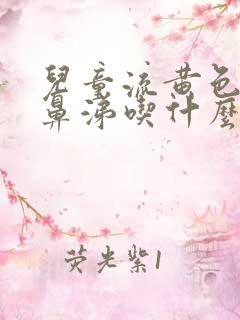 兒童流黄色
鼻涕喫什麼
荧光紫1